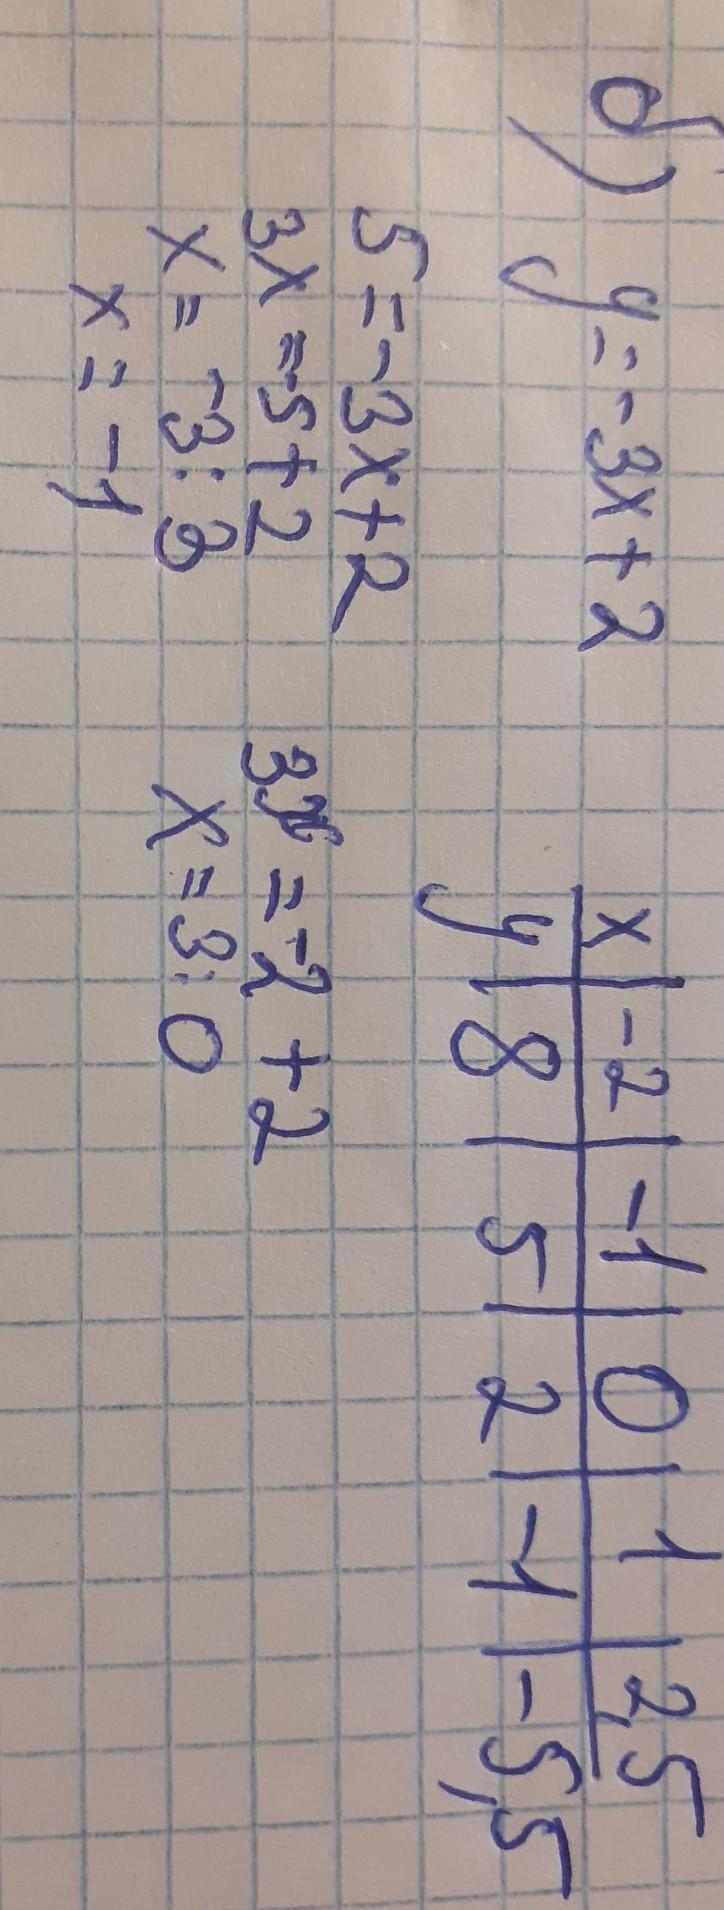 б) y = -3x + 2
x | -2 | -1 | 0 | 1 | 2,5
y | 8 | 5 | 2 | -1 | -5,5
5 = -3x + 2
3x = -5 + 2
x = -3 : 3
x = -1
3x = -2 + 2
x = 3 : 0